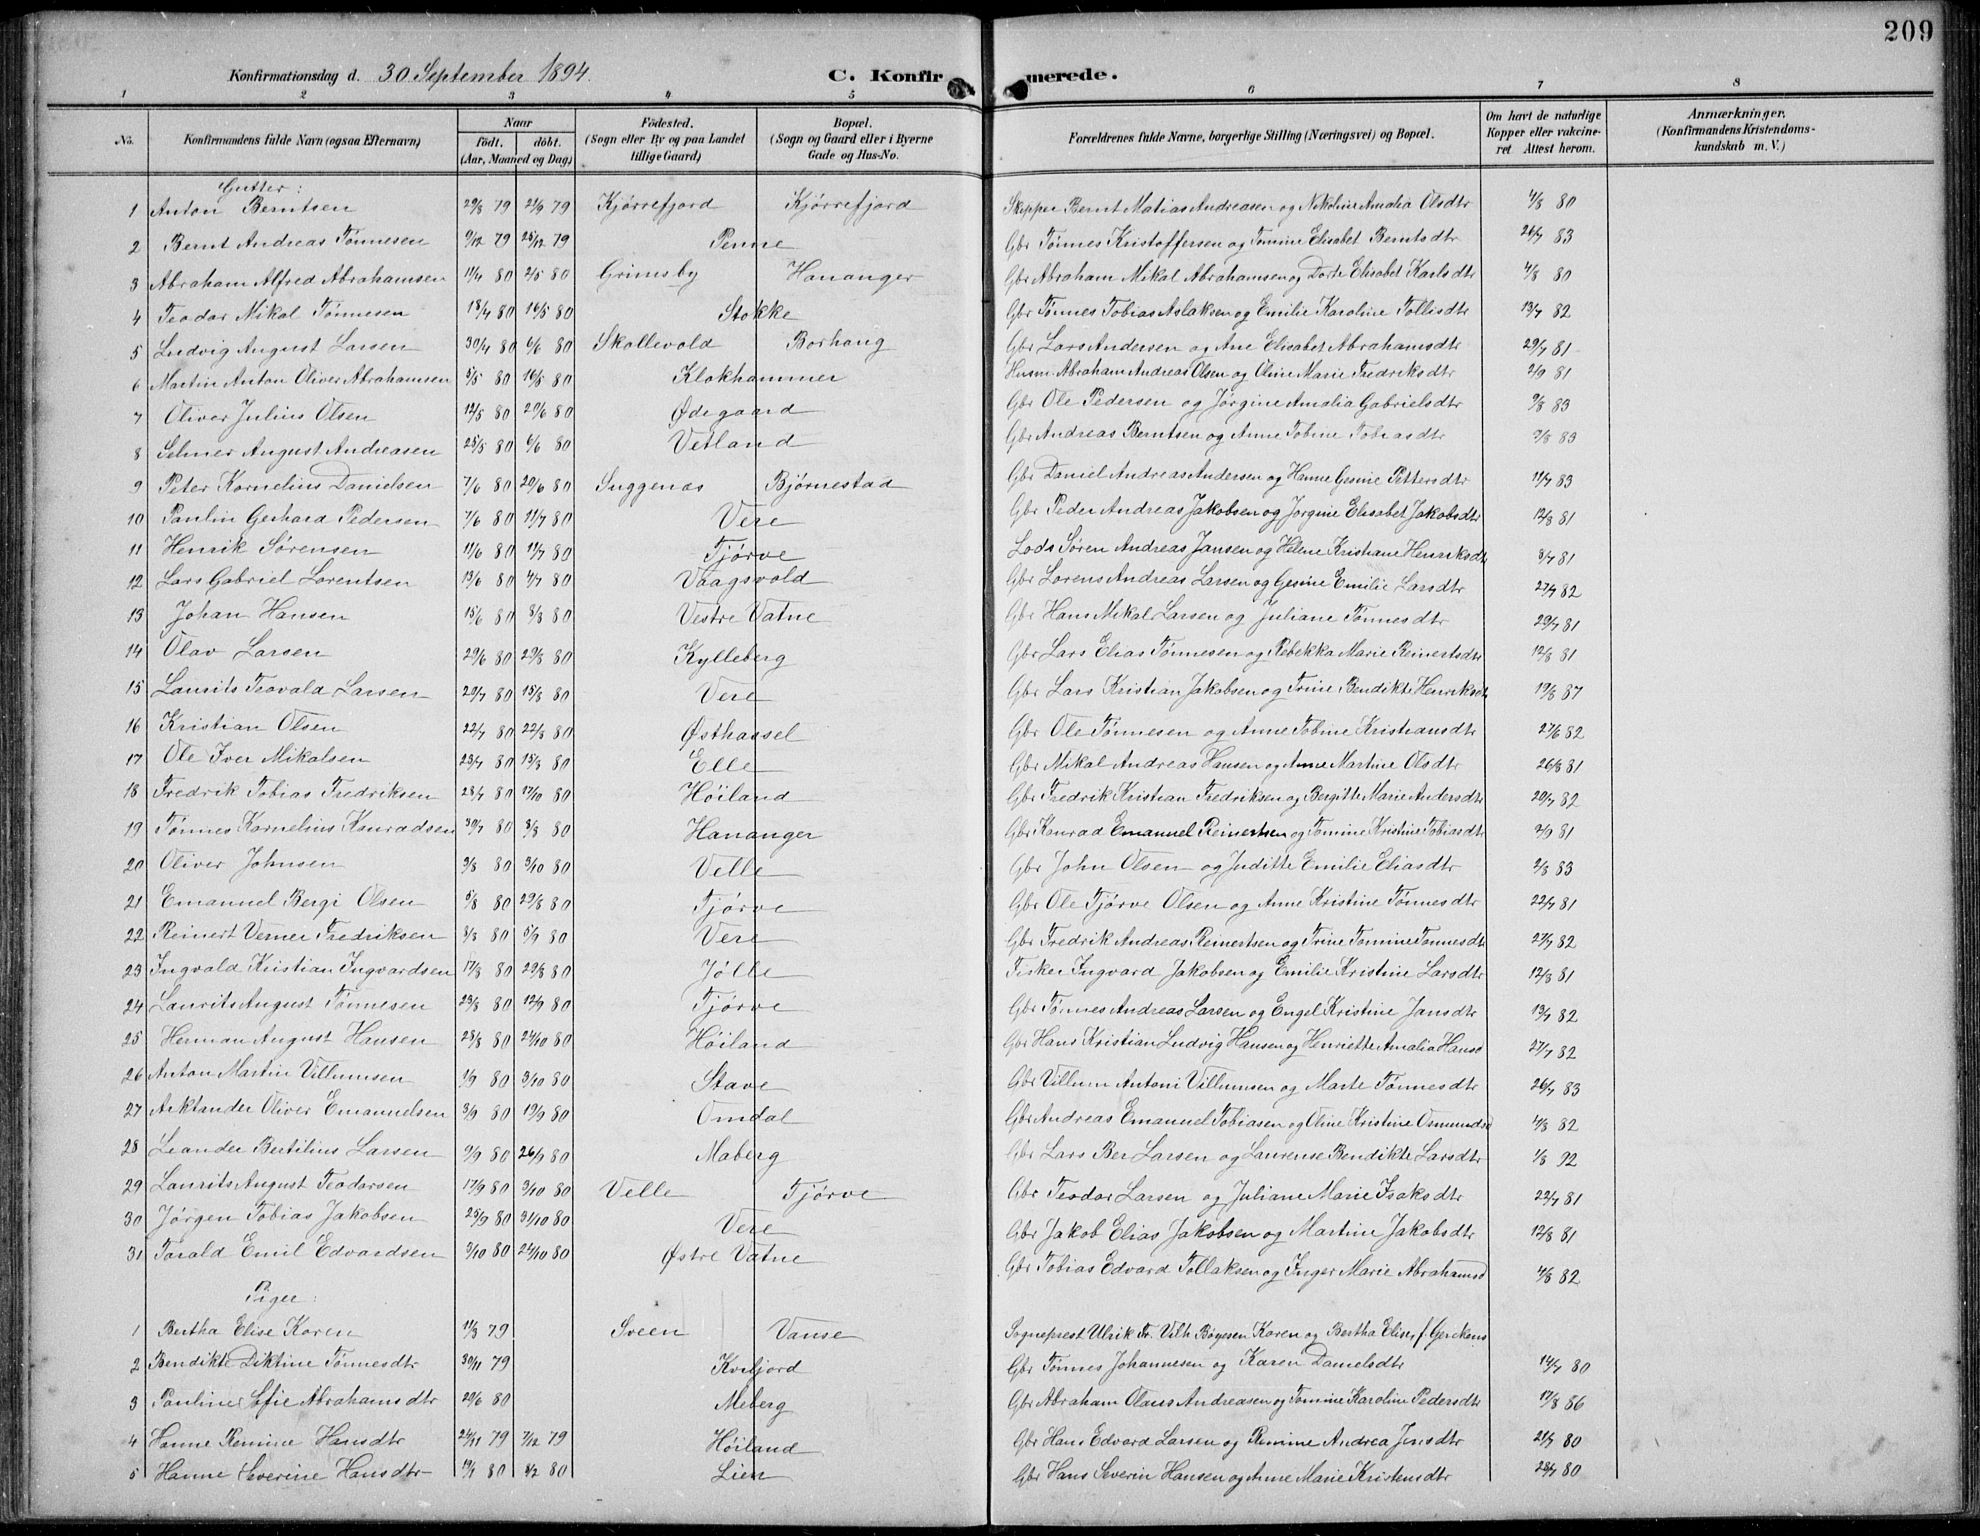 209
Konfirmationsdag d. 30 September 1894.
C. Konfirmerede.
1 2 3 4 5 6 7 8
No.
Konfirmandens fulde Navn (ogsaa Efternavn)
Naar
født. døbt.
(Aar, Maaned og Dag)
Fødested.
(Sogn eller By og paa Landet
tillige Gaard)
Bopæl.
(Sogn og Gaard eller i Byerne
Gade og Hus-No.
Forældrenes fulde Navne, borgerlige Stilling (Næringsvei) og Bopæl.
Om havt de naturlige
Kopper eller vakcine-
ret Attest herom.
Anmærkninger.
(Konfirmandens Kristendoms-
kundskab m. V.)
Gutter:
1 Anton Berntsen 29/8 79 21/9 79 Kjørrefjord Kjørrefjord Skipper Bernt Matias Andreasen og Nikoline Amalia Olsdtr 4/8 80
2 Bernt Andreas Tønnesen 9/12 79 25/12 79 Penne Gbr Tønnes Kristoffersen og Tomine Elisabet Berntsdtr 26/7 83
3 Abraham Alfred Abrahamsen 11/4 80 2/5 80 Grimsby Hananger Gbr Abraham Mikal Abrahamsen og Dorte Elisabet Karlsdtr 4/8 80
4 Teodor Mikal Tønnesen 18/4 80 16/5 80 Stokke Gbr Tønnes Tobias Aslaksen og Emilie Karoline Tollisdtr 13/7 82
5 Ludvig August Larsen 30/4 80 6/6 80 Skollevold Borhaug Gbr Lars Andersen og Ane Elisabet Abrahamsdtr 29/7 81
6 Martin Anton Oliver Abrahamsen 5/5 80 16/5 80 Klokhammer Husm. Abraham Andreas Olsen og Oline Marie Fredriksdtr 2/9 81
7 Oliver Julius Olsen 12/5 80 20/6 80 Ødegaard Gbr Ole Pedersen og Jørgine Amalia Gabrielsdtr 9/8 83
8 Selmer August Andreasen 25/5 80 6/6 80 Vetland Gbr Andreas Berntsen og Anne Tobine Tobiasdtr 9/8 83
9 Peter Kornelius Danielsen 7/6 80 20/6 80 Suggenas Bjørnestad Gbr Daniel Andreas Andersen og Hanne Gesine Pettersdtr 11/7 83
10 Paulin Gerhard Pedersen 7/6 80 11/7 80 Vere Gbr Peder Andreas Jakobsen og Jørgine Elisabet Jakobsdtr 12/8 81
11 Henrik Sørensen 11/6 80 11/7 80 Tjørve Lods Søren Andreas Jansen og Helene Kristiane Henriksdtr 8/7 81
12 Lars Gabriel Lorentsen 13/6 80 4/7 80 Vaagsvold Gbr Lorens Andreas Larsen og Gesine Emilie Larsdtr 27/7 82
13 Johan Hansen 15/6 80 8/8 80 Vestre Vatne Gbr Hans Mikal Larsen og Juliane Tønnesdtr 29/7 81
14 Olav Larsen 29/6 80 29/8 80 Kylleberg Gbr Lars Elias Tønnesen og Rebekka Marie Reinertsdtr 12/8 81
15 Laurits Teovald Larsen 20/7 80 15/8 80 Vere Gbr Lars Kristian Jakobsen og Trine Bendikte Henriksdtr 19/8 87
16 Kristian Olsen 22/7 80 22/8 80 Østhassel Gbr Ole Tønnesen og Anne Tobine Kristiansdtr 27/6 82
17 Ole Iver Mikalsen 23/7 80 15/8 80 Elle Gbr Mikal Andreas Hansen og Anne Martine Olsdtr 26/8 81
18 Fredrik Tobias Fredriksen 28/7 80 17/10 80 Høiland Gbr Fredrik Kristian Fredriksen og Bergitte Marie Andersdtr 20/7 82
19 Tønnes Kornelius Konradsen 30/7 80 8/8 80 Hananger Gbr Konrad Emanuel Reinertsen og Tomine Kristine Tobiasdtr 2/9 81
20 Oliver Johnsen 3/8 80 3/10 80 Velle Gbr John Olsen og Juditte Emilie Eliasdtr 2/8 83
21 Emanuel Bergi Olsen 5/8 80 29/8 80 Tjørve Gbr Ole Tjørve Olsen og Anne Kristine Tønnesdtr 22/7 81
22 Reinert Verner Fredriksen 8/8 80 5/9 80 Vere Gbr Fredrik Andreas Reinertsen og Trine Tomine Tønnesdtr 27/7 82
23 Ingvald Kristian Ingvardsen 17/8 80 29/8 80 Jølle Fisker Ingvard Jakobsen og Emilie Kristine Larsdtr 12/8 81
24 Laurits August Tønnesen 23/8 80 12/9 80 Tjørve Gbr Tønnes Andreas Larsen og Engel Kristine Jansdtr 13/7 82
25 Herman August Hansen 28/8 80 24/10 80 Høiland Gbr Hans Kristian Ludvig Hansen og Henriette Amalia Hansd 27/7 82
26 Anton Martin Villumsen 1/9 80 3/10 80 Stave Gbr Villum Antoni Villumsen og Marte Tønnesdtr 26/7 83
27 Arktander Oliver Emanuelsen 3/9 80 19/9 80 Omdal Gbr Andreas Emanuel Tobiasen og Oline Kristine Osmundsd 4/8 82
28 Leander Bertilius Larsen 9/9 80 26/9 80 Maberg Gbr Lars Ber Larsen og Laurense Bendikte Larsdtr 1/8 92
29 Laurits August Teodorsen 17/9 80 3/10 80 Velle Tjørve Gbr Teodor Larsen og Juliane Marie Isaksdtr 22/7 81
30 Jørgen Tobias Jakobsen 25/9 80 31/10 80 Vere Gbr Jakob Elias Jakobsen og Martine Jakobsdtr 12/8 81
31 Torald Emil Edvardsen 3/10 80 24/10 80 Østre Vatne Gbr Tobias Edvard Tollaksen og Inger Marie Abrahamsd 4/8 82
Piger:
1 Bertha Elise Koren 11/3 79 Sveen Vanse Sogneprest Ulrik Fr. Vilh Bøyesen Koren og Bertha Elise f. Gerckens
2 Bendikte Diktine Tønnesdtr 30/11 79 Kviljord Gbr Tønnes Johannesen og Karen Danielsdtr 14/7 80
3 Pauline Sefie Abrahamsdtr 29/6 80 Meberg Gbr Abraham Olaus Andreasen og Tomine Karoline Pedersdtr 17/8 86
4 Hanne Remine Hansdtr 24/11 79 7/12 79 Høiland Gbr Hans Edvard Larsen og Remine Andrea Jensdtr 21/7 80
5 Hanne Severine Hansdtr 19/1 80 8/2 80 Lien Gbr Hans Severin Hansen og Anne Marie Kristensdtr 28/7 80